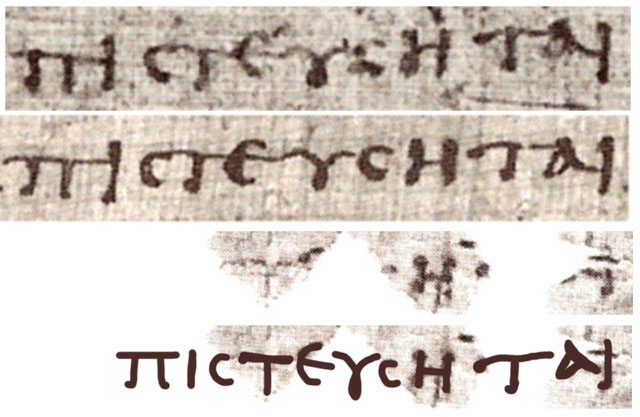 ΠΙϹΤΕΥϹΗΤΑΙ
ΠΙϹΤΕΥϹΗΤΑΙ
Η
ΠΙϹΤΕΥϹΗΤΑΙ